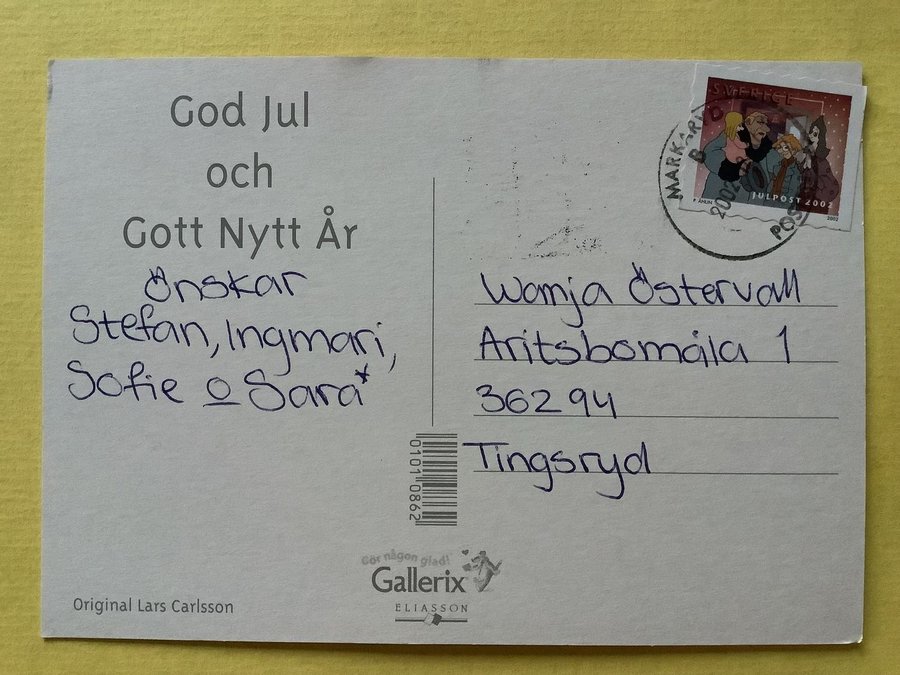 God Jul
och
Gott Nytt År
Önskar
Stefan, Ingmari,
Sofie o Sara*
Original Lars Carlsson
SVERIGE
JULPOST 2002
P. AHLIN
2002
MARKARYD
POST
Wanja Östervall
Aritsbomåla 1
362 94
Tingsryd
01010862
Gör någon glad!
Gallerix
ELIASSON